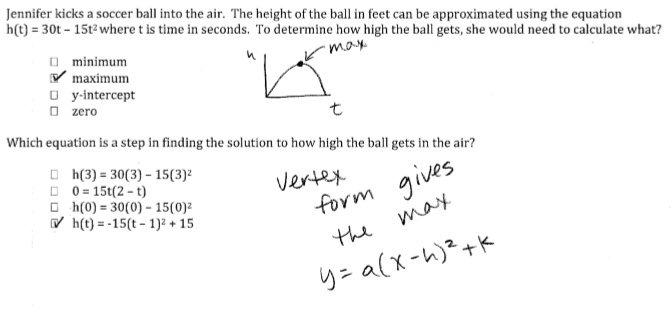 Jennifer kicks a soccer ball into the air. The height of the ball in feet can be approximated using the equation
h(t) = 30t – 15t² where t is time in seconds. To determine how high the ball gets, she would need to calculate what?
h
max
☐ minimum
☑ maximum
☐ y-intercept
☐ zero
t
Which equation is a step in finding the solution to how high the ball gets in the air?
☐ h(3) = 30(3) – 15(3)²
☐ 0 = 15t(2 – t)
☐ h(0) = 30(0) – 15(0)²
☑ h(t) = -15(t – 1)² + 15
vertex
form gives
the max
y = a(x-h)² + k